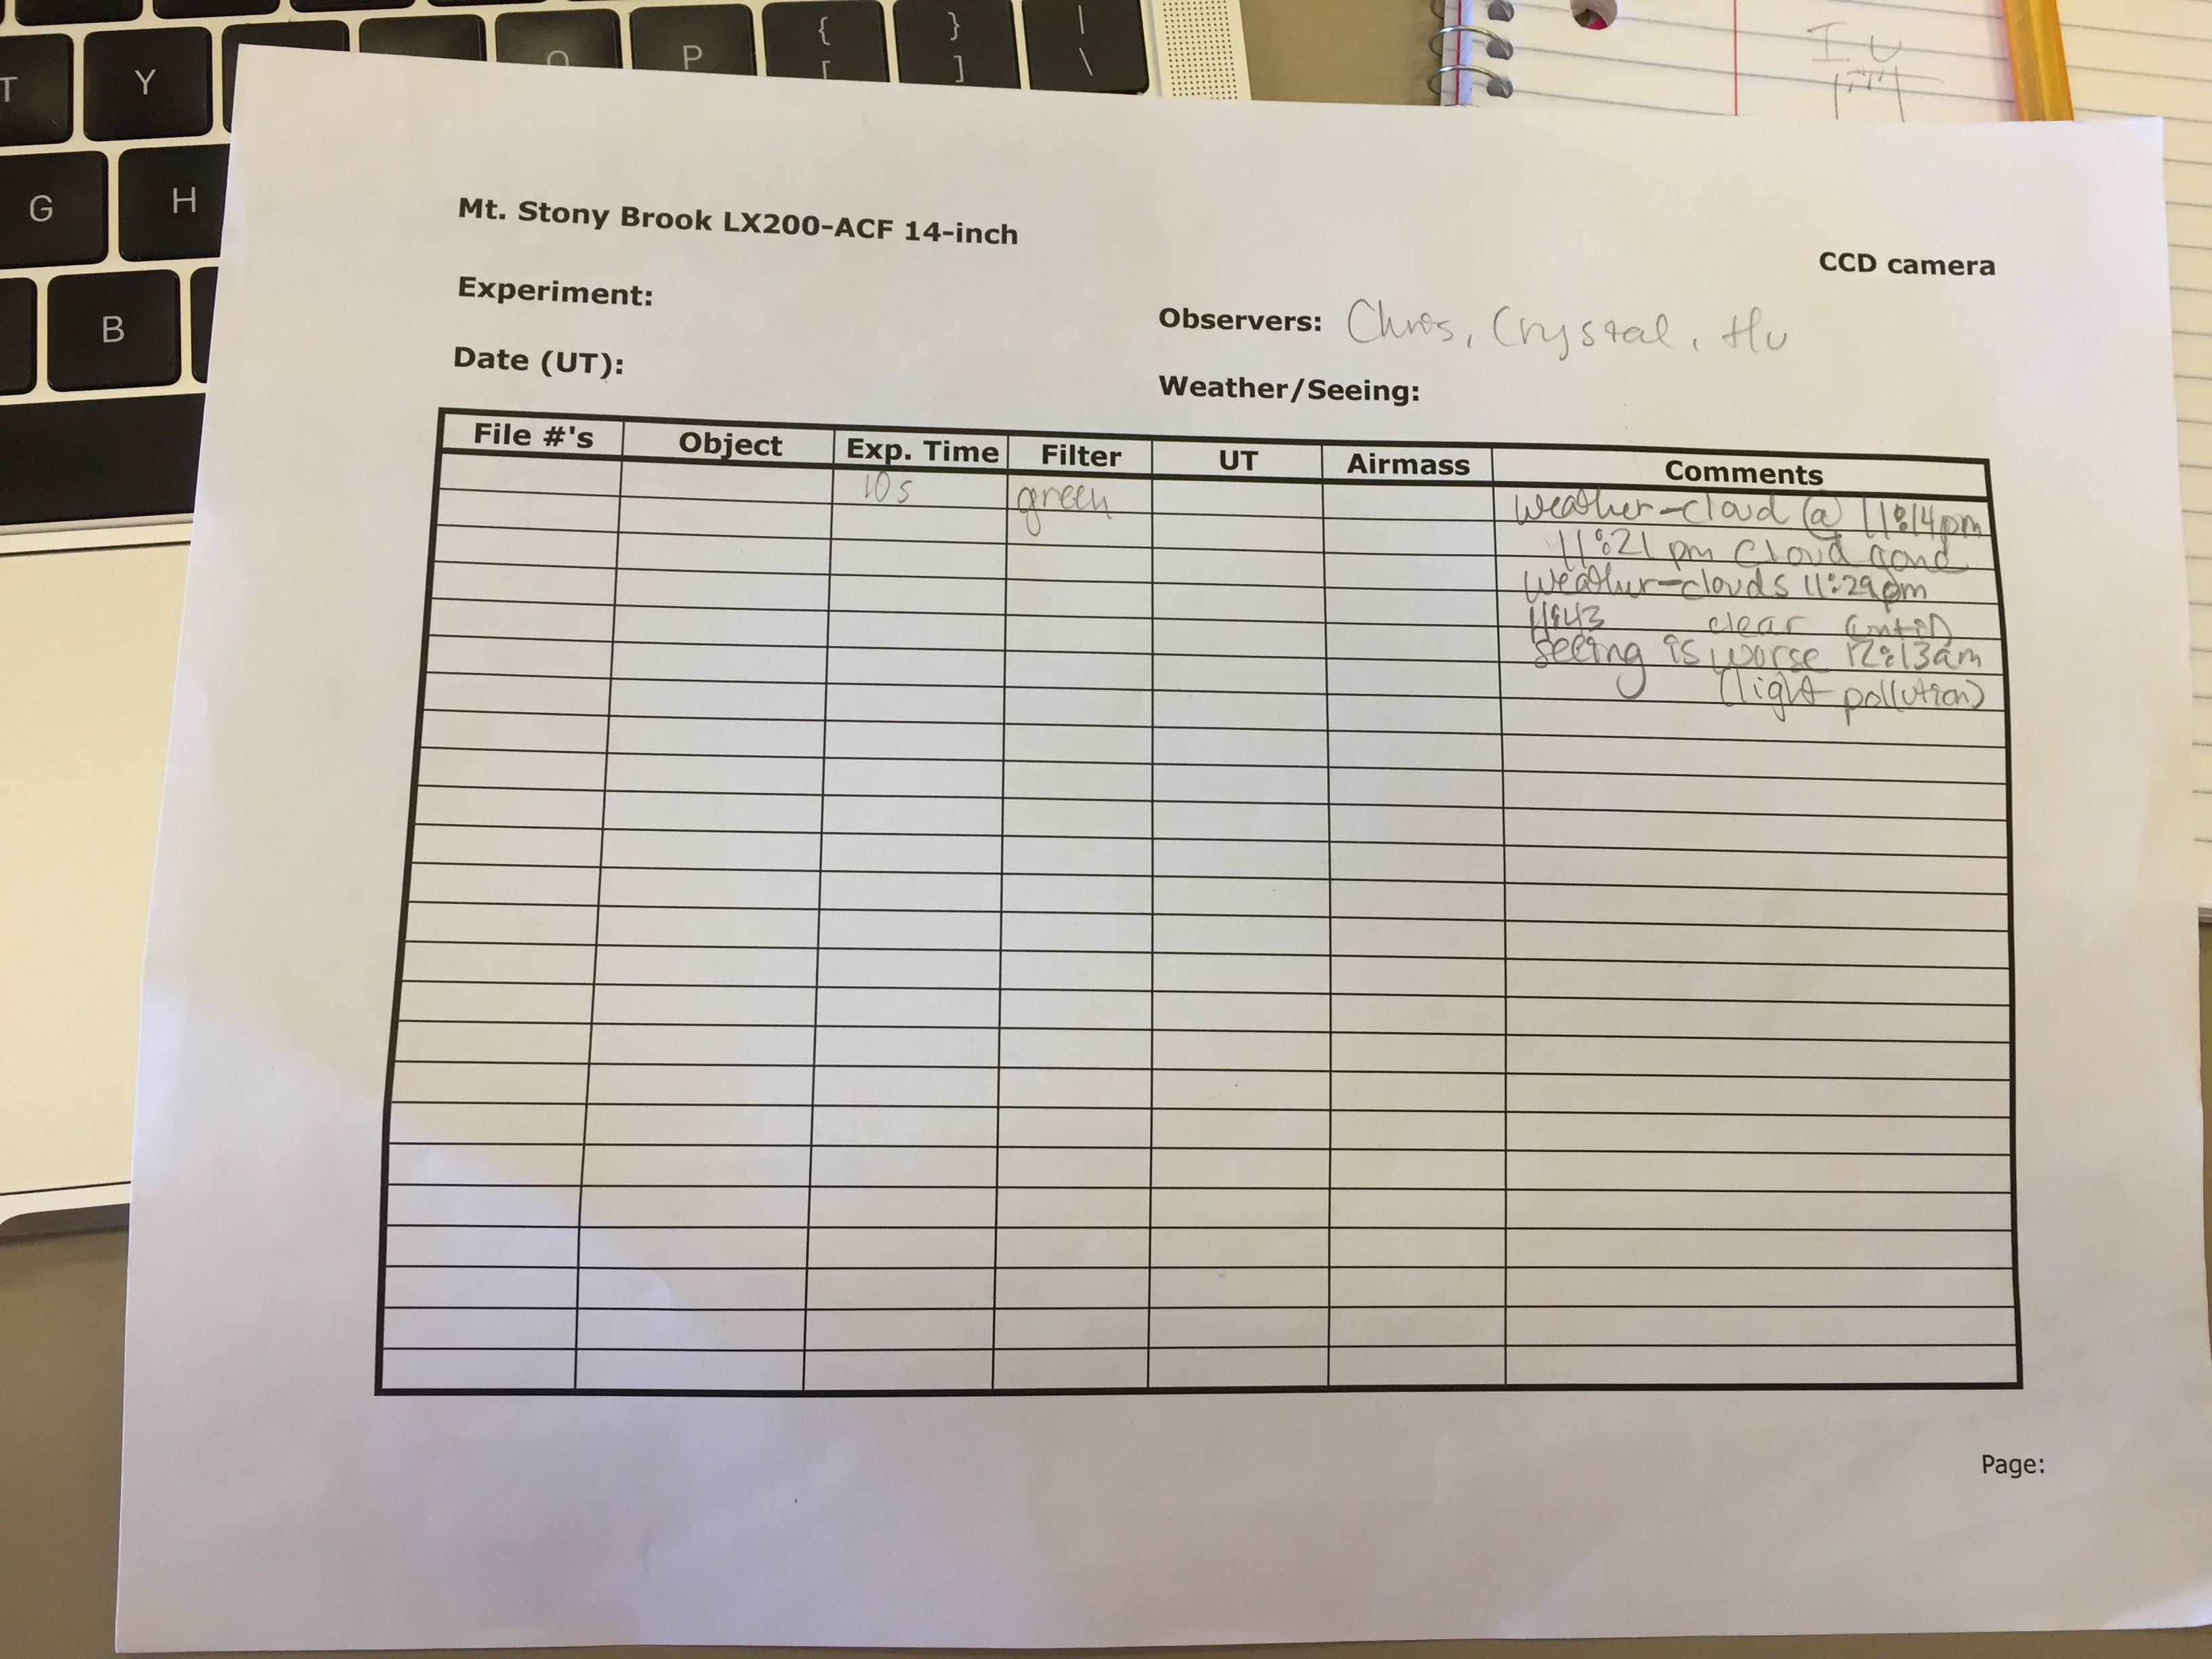 T Y O P { [ } ] | \
G H
B
Mt. Stony Brook LX200-ACF 14-inch
CCD camera
Experiment:
Observers: Chris, Crystal, Hu
Date (UT):
Weather/Seeing:
File #'s Object Exp. Time Filter UT Airmass Comments
10s green weather-cloud @ 11:14pm
11:21 pm cloud gond
weather-clouds 11:29pm
11:43 clear (until)
Seeing is worse 12:13am
(light pollution)
Page: